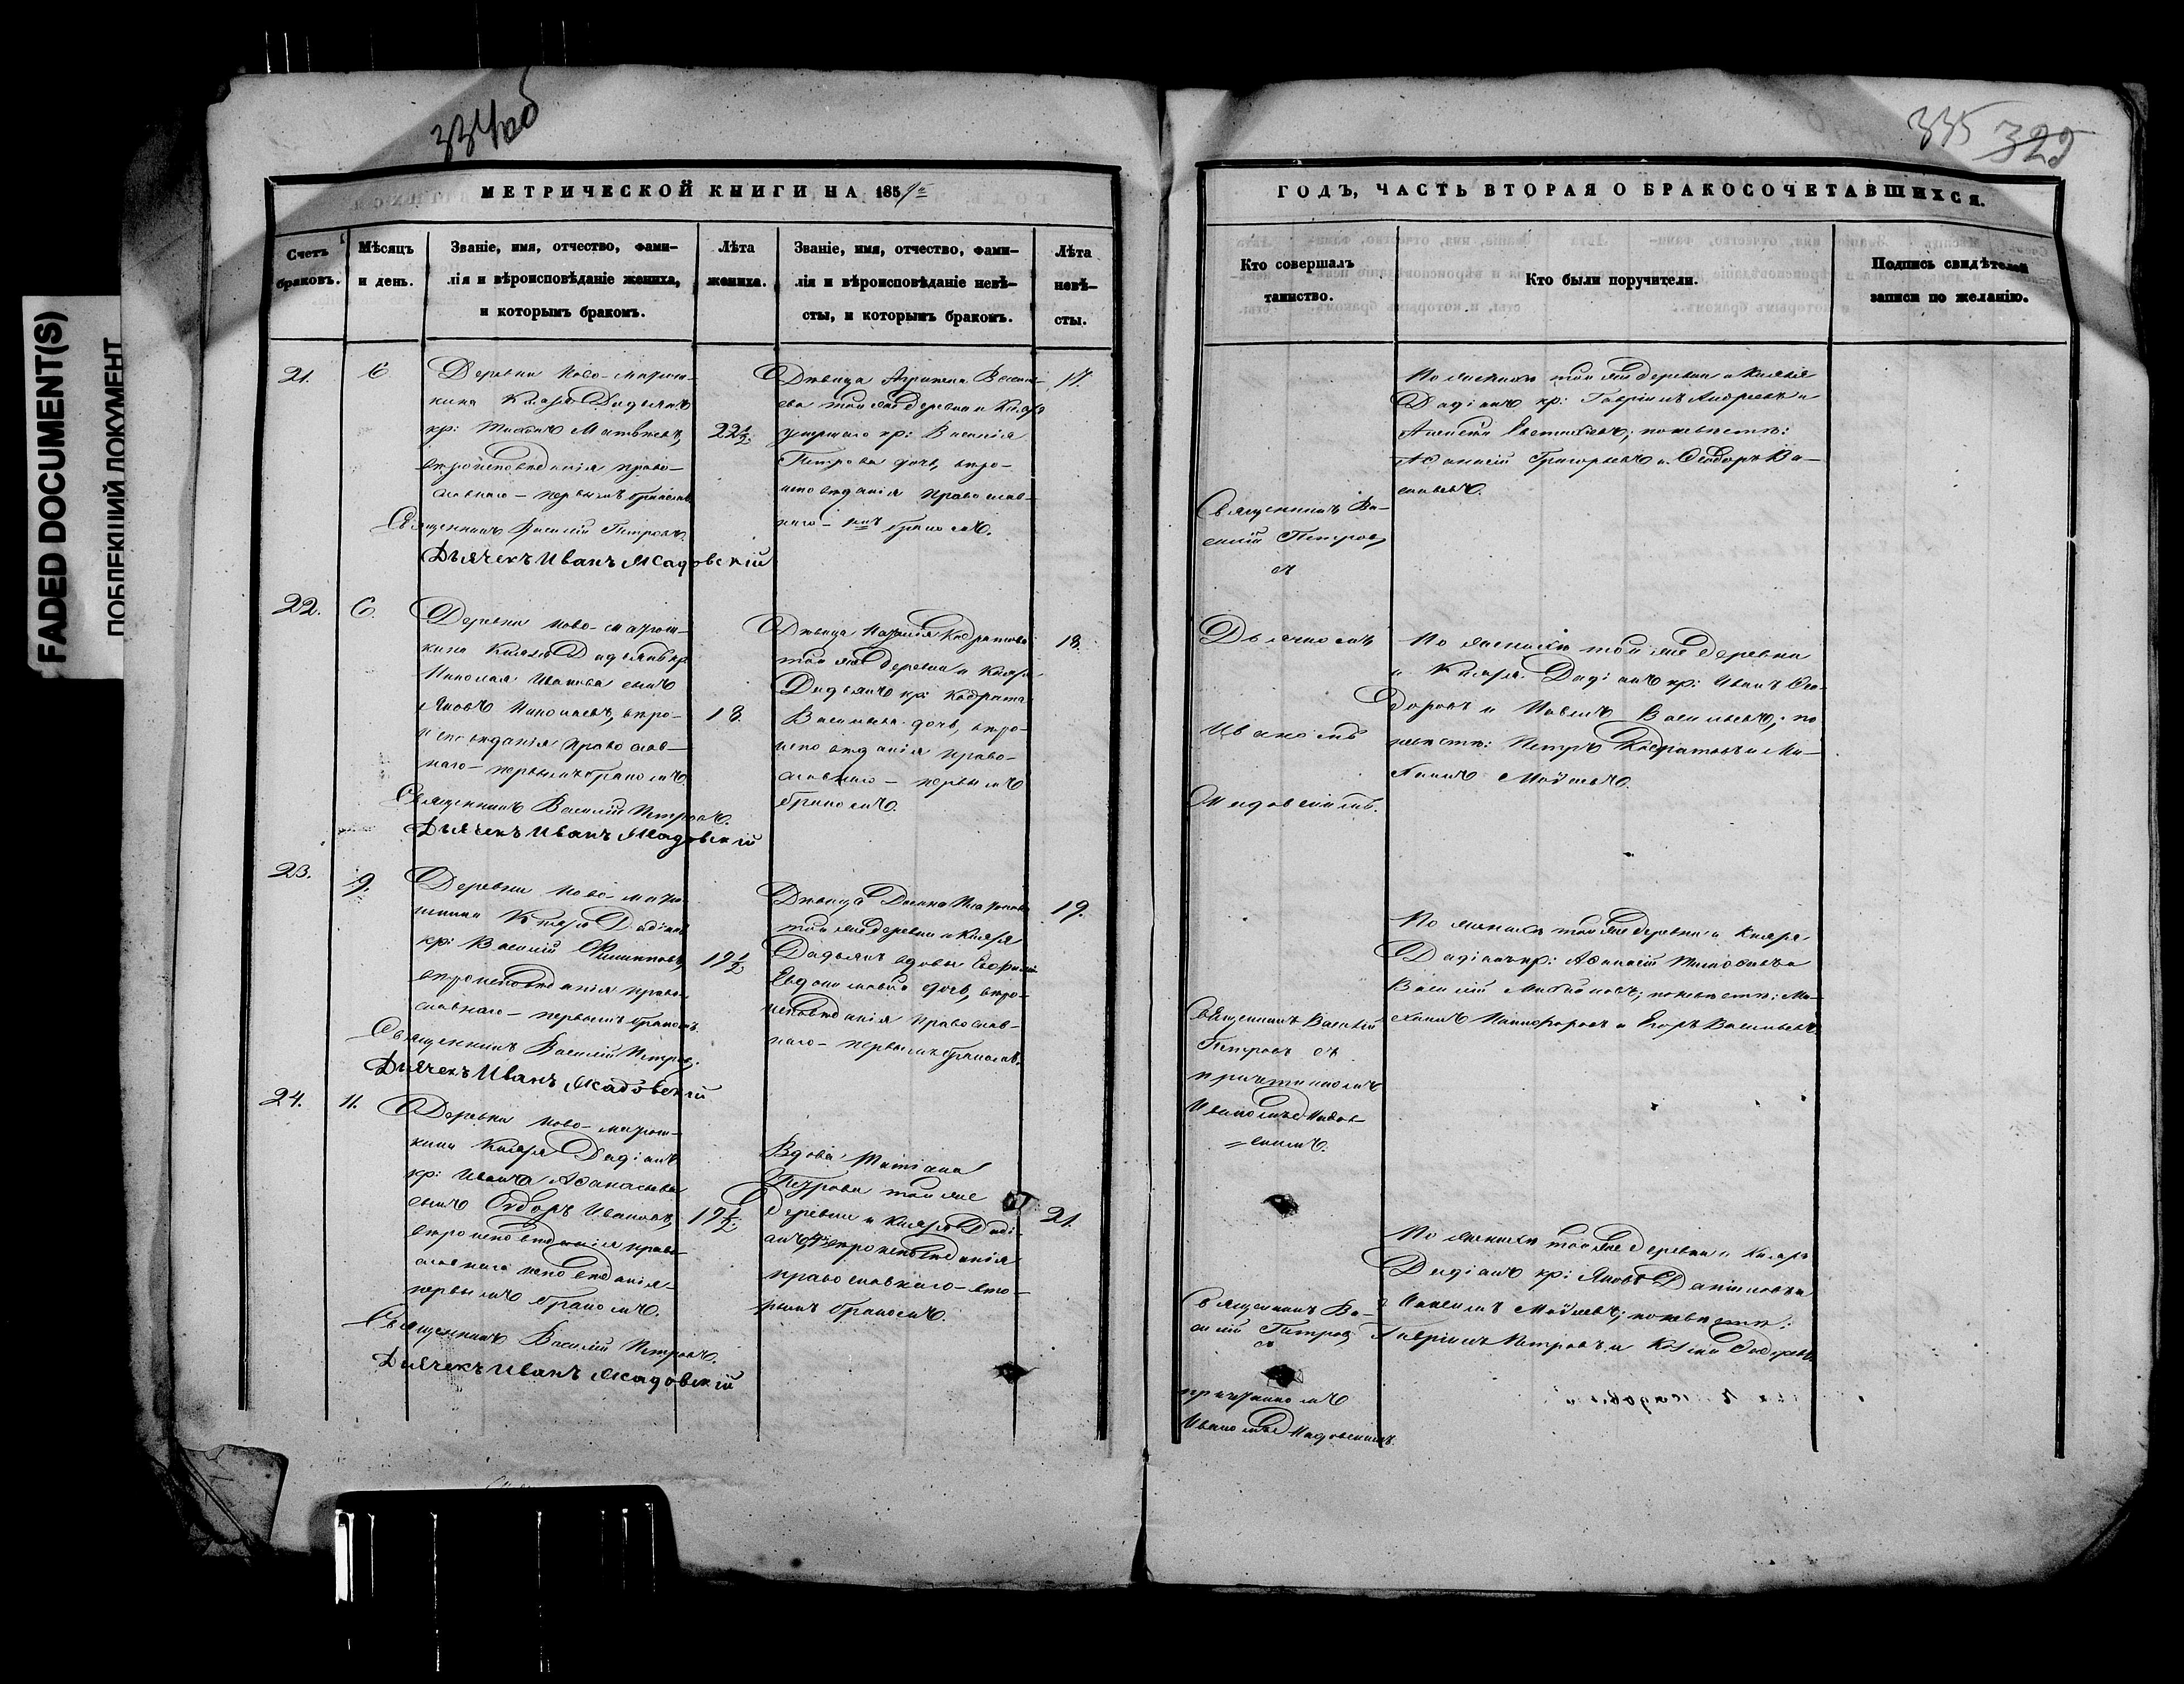 FADED DOCUMENT(S)
ПОБЛЕКШИЙ ДОКУМЕНТ
334об
335 329
МЕТРИЧЕСКОЙ КНИГИ НА 185
Счетъ браковъ.
Мѣсяцъ и день.
Званіе, имя, отчество, фами-
лія и вѣроисповѣданіе жениха,
и которымъ бракомъ.
Лѣта жениха.
Званіе, имя, отчество, фами-
лія и вѣроисповѣданіе невѣ-
сты, и которымъ бракомъ.
Лѣта невѣ-
сты.
21.
6
Деревни Ново-матюш-
кина Князя Дадьянъ
кр: Матвѣевъ,
вѣроисповѣданія право-
славнаго - первымъ бракомъ
22½
Священникъ Василій Петровъ.
Дьячекъ Иванъ Жадовскій
Дѣвица
той же деревни и Князя
умершаго кр: Василія
Петрова дочь, вѣро-
исповѣданія православ-
наго - бракомъ.
17.
22.
6.
Деревни Ново-матюш-
кина Князя Дадьянъ кр
Николая Иванова сынъ
Яковъ Николаевъ, вѣро-
исповѣданія православ-
наго - первымъ бракомъ
18.
Священникъ Василій Петровъ.
Дьячекъ Иванъ Жадовскій
Дѣвица Кодратова
той же деревни и Князя
Дадьянъ кр: Кодрата
Васильева дочь, вѣро-
исповѣданія право-
славнаго - первымъ
бракомъ.
18.
23.
9.
Деревни Ново-матю-
шкина Князя Дадіанъ
кр: Василій Филипповъ,
вѣроисповѣданія право-
славнаго - первымъ бракомъ.
19½
Священникъ Василій Петровъ.
Дьячекъ Иванъ Жадовскій
Дѣвица
той же деревни и Князя
Дадьянъ вдовы
Евдокимовой дочь, вѣро-
исповѣданія православ-
наго - первымъ бракомъ.
19.
24.
11.
Деревни Ново-матюш-
кина Князя Дадіанъ
кр: Ивана Афанасьева
сынъ Ѳедоръ Ивановъ,
вѣроисповѣданія право-
славнаго исповѣданія -
первымъ бракомъ.
19½
Священникъ Василій Петровъ.
Дьячекъ Иванъ Жадовскій
Вдова Татіана
Петрова той же
деревни и Князя Даді-
анъ вѣроисповѣданія
православнаго - вто-
рымъ бракомъ.
21.
ГОДЪ, ЧАСТЬ ВТОРАЯ О БРАКОСОЧЕТАВШИХСЯ.
Кто совершалъ
таинство.
Кто были поручители.
Подпись свидѣтелей
записи по желанію.
Священникъ Ва-
силій Петровъ
съ
Дьячкомъ
Иваномъ
Жадовскимъ.
По женихѣ той же деревни и Князя
Дадіанъ кр: Гавріилъ Андреевъ и
Алексѣй по невѣстѣ:
Афанасій Григорьевъ и Ѳеодоръ Ва-
сильевъ.
По женихѣ той же деревни
и Князя Дадіанъ кр: Иванъ Ѳео-
доровъ и Павелъ Васильевъ; по
невѣстѣ: Петръ Кодратовъ и Ми-
хаилъ Моѵсеевъ.
Священникъ Василій
Петровъ съ
причетникомъ
Иваномъ Жадов-
скимъ.
По женихѣ той же деревни и Князя
Дадіанъ кр: Афанасій Тимофѣевъ и
Василій по невѣстѣ: Ми-
хаилъ Никифоровъ и Егоръ Васильевъ
Священникъ Ва-
силій Петровъ
съ
причетникомъ
Иваномъ Жадовскимъ.
По женихѣ той же деревни и Князя
Дадіанъ кр: Яковъ Даниловъ и
Моѵсеевъ; по невѣстѣ:
Гавріилъ Петровъ и Козма Ѳеодоровъ